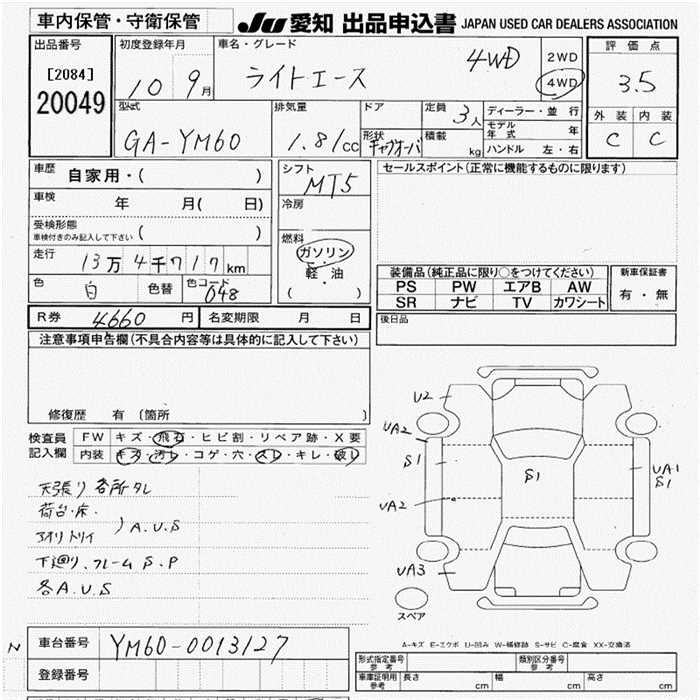 車内保管・守衛保管
JU 愛知 出品申込書 JAPAN USED CAR DEALERS ASSOCIATION
出品番号
[2084]
20049
初度登録年月
10 9月
車名・グレード
ライトエース 4WD
2WD
4WD
評価点
3.5
外装 内装
C C
型式
GA-YM60
排気量
1.81/cc
ドア
形状
キャブオーバ
定員
3人
積載
kg
ディーラー・並 行
モデル年式 年
ハンドル 左・右
車歴 自家用・( )
車検 年 月( 日)
受検形態
車検付きのみ記入して下さい ( )
走行 13万4千717km
色 白 色替 色コード 048
シフト
MT5
冷房
燃料
ガソリン
・
軽油
( )
セールスポイント(正常に機能するものに限ります)
装備品(純正品に限り○をつけてください)
PS PW エアB AW
SR ナビ TV カワシート
新車保証書
有・無
後日品
R券 4660円 名変期限 月 日
注意事項申告欄(不具合内容等は具体的に記入して下さい)
修復歴 有 (箇所 )
検査員
記入欄
FW キズ・飛石・ヒビ割・リペア跡・X要
内装 キズ・汚レ・コゲ・穴・スレ・キレ・破レ
天張り各所タレ
荷台・床・
アオリトリイ )A.U.S
下廻り、フレームS.P
各A.U.S
U2
UA2
S1
UA2
UA3
S1
UA1
S1
スペア
A-キズ E-エクボ U-凹み W-補修跡 S-サビ C-腐食 XX-交換済
N
車台番号 YM60-0013127
登録番号
形式指定番号
参考
類別区分番号
参考
車庫証明用
参考
長さ cm 幅 cm 高さ cm